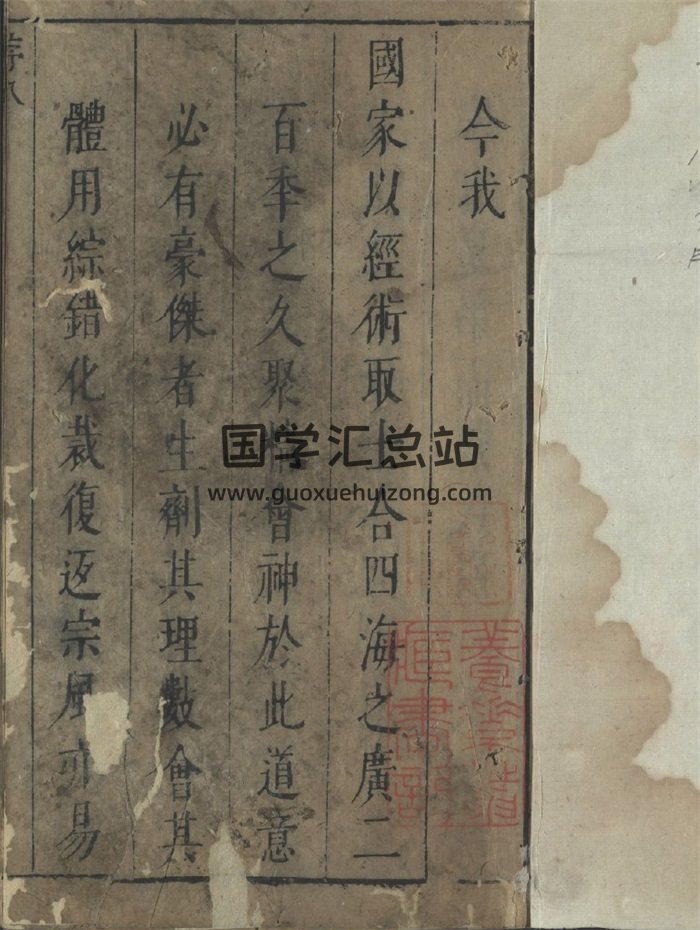 今我
國家以經術取士合四海之廣二
百季之久聚精會神於此道意
必有豪傑者生劑其理數會其
體用綜錯化裁復返宗風亦易
序
国学汇总站
www.guoxuehuizong.com